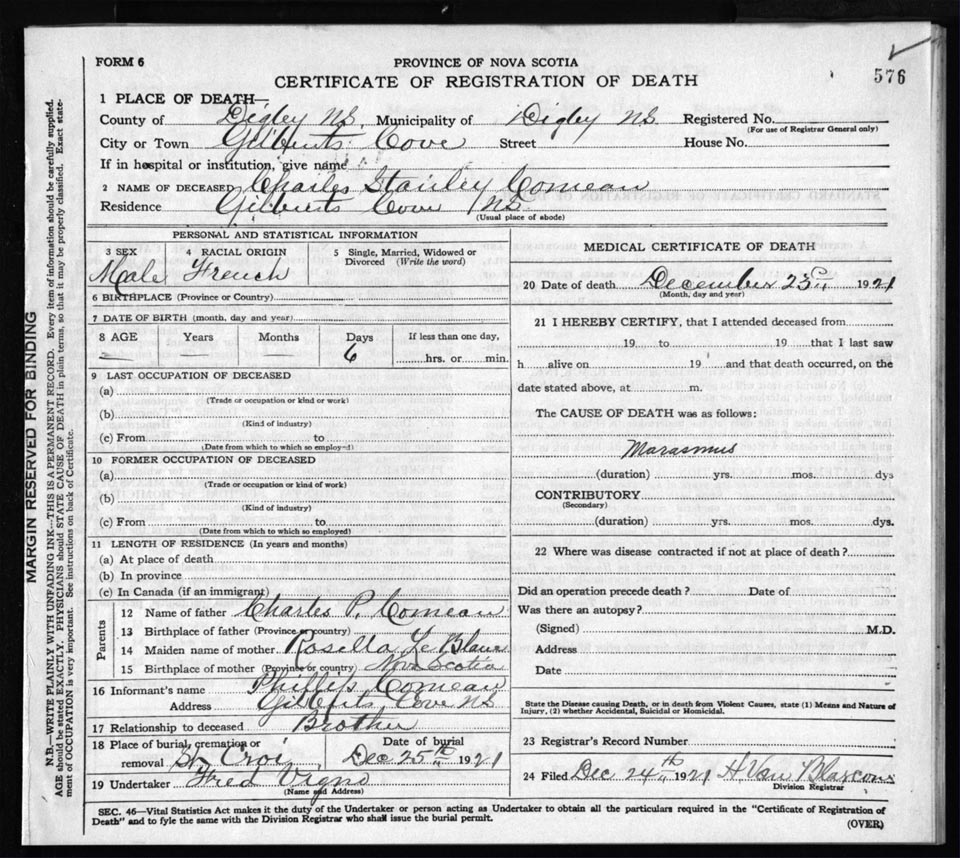 FORM 6
PROVINCE OF NOVA SCOTIA
576
CERTIFICATE OF REGISTRATION OF DEATH
1 PLACE OF DEATH—
County of Digby NS. Municipality of Digby NS Registered No.
(For use of Registrar General only)
City or Town Gilberts Cove Street House No.
If in hospital or institution, give name
2 NAME OF DECEASED Charles Stanley Comeau
Residence Gilberts Cove NS.
(Usual place of abode)
PERSONAL AND STATISTICAL INFORMATION
3 SEX 4 RACIAL ORIGIN 5 Single, Married, Widowed or
Divorced (Write the word)
Male French
6 BIRTHPLACE (Province or Country)
7 DATE OF BIRTH (month, day and year)
8 AGE Years Months Days If less than one day,
— 6 hrs. or min.
9 LAST OCCUPATION OF DECEASED
(a)
(Trade or occupation or kind or work)
(b)
(Kind of industry)
(c) From to
(Date from which to which so employed)
10 FORMER OCCUPATION OF DECEASED
(a)
(Trade or occupation or kind of work)
(b)
(Kind of industry)
(c) From to
(Date from which to which so employed)
11 LENGTH OF RESIDENCE (In years and months)
(a) At place of death
(b) In province
(c) In Canada (if an immigrant)
Parents
12 Name of father Charles P. Comeau
13 Birthplace of father (Province or country)
14 Maiden name of mother Rosella Le Blanc
15 Birthplace of mother (Province or country) Nova Scotia
16 Informant's name Phillip Comeau
Address Gilberts Cove NS
17 Relationship to deceased Brother
18 Place of burial, cremation or Date of burial
removal St Croi Dec 25th 1921
19 Undertaker Fred
(Name and Address)
MEDICAL CERTIFICATE OF DEATH
20 Date of death December 23 1921
(Month, day and year)
21 I HEREBY CERTIFY, that I attended deceased from
19 to 19 that I last saw
h alive on 19 and that death occurred, on the
date stated above, at m.
The CAUSE OF DEATH was as follows:
Marasmus
(duration) yrs. mos. dys
CONTRIBUTORY
(Secondary)
(duration) yrs. mos. dys.
22 Where was disease contracted if not at place of death?
Did an operation precede death? Date of
Was there an autopsy?
(Signed) M.D.
Address
Date
State the Disease causing Death, or in death from Violent Causes, state (1) Means and Nature of
Injury, (2) whether Accidental, Suicidal or Homicidal.
23 Registrar's Record Number
24 Filed Dec 24th 1921 H Van Blarcom
Division Registrar
SEC. 46—Vital Statistics Act makes it the duty of the Undertaker or person acting as Undertaker to obtain all the particulars required in the "Certificate of Registration of
Death" and to fyle the same with the Division Registrar who shall issue the burial permit.
(OVER)
MARGIN RESERVED FOR BINDING
N.B.—WRITE PLAINLY WITH UNFADING INK—THIS IS A PERMANENT RECORD. Every item of information should be carefully supplied.
AGE should be stated EXACTLY. PHYSICIANS should STATE CAUSE OF DEATH in plain terms, so that it may be properly classified. Exact state-
ment of OCCUPATION is very important. See instructions on back of Certificate.